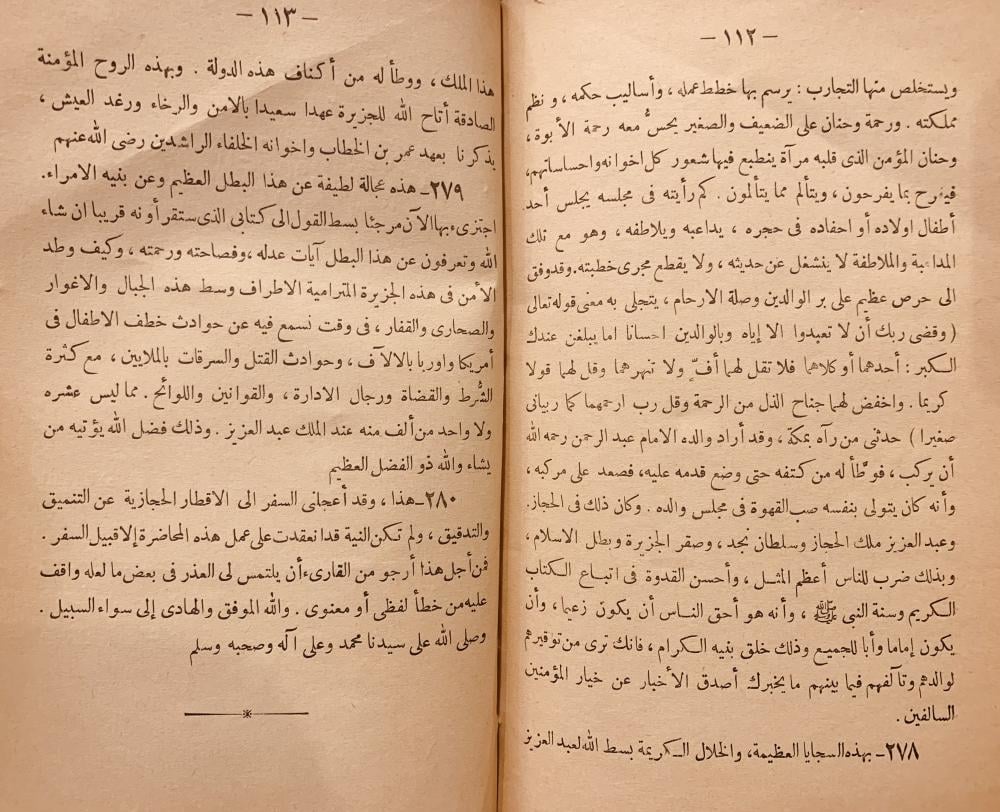 — ١١٢ —
ويستخلص منها التجارب : يرسم بها خطط عمله ، وأساليب حكمه ، ونظم
مملكته . ورحمة وحنان على الضعيف والصغير يحسُّ معه رحمة الأبوة ،
وحنان المؤمن الذى قلبه مرآة ينطبع فيها شعور كل اخوانه واحساساتهم ،
فيفرح بما يفرحون ، ويتألم مما يتألمون . كم رأيته فى مجلسه يجلس أحد
أطفال اولاده أو احفاده فى حجره ، يداعبه ويلاطفه ، وهو مع تلك
المداعبة والملاطفة لا ينشغل عن حديثه ، ولا يقطع مجرى خطبته . وقد وفق
الى حرص عظيم على بر الوالدين وصلة الارحام ، يتجلى به معنى قوله تعالى
( وقضى ربك أن لا تعبدوا الا إياه وبالوالدين احسانا اما يبلغن عندك
الكبر : أحدهما أو كلاهما فلا تقل لهما أفّ ولا تنهرهما وقل لهما قولا
كريما . واخفض لهما جناح الذل من الرحمة وقل رب ارحمهما كما ربيانى
صغيرا ) حدثنى من رآه بمكة ، وقد أراد والده الامام عبد الرحمن رحمه الله
أن يركب ، فوطَّأ له من كتفه حتى وضع قدمه عليه ، فصعد على مركبه ،
وأنه كان يتولى بنفسه صب القهوة فى مجلس والده . وكان ذلك فى الحجاز .
وعبد العزيز ملك الحجاز وسلطان نجد ، وصقر الجزيرة وبطل الاسلام ،
وبذلك ضرب للناس أعظم المثل ، وأحسن القدوة فى اتباع الكتاب
الكريم وسنة النبي ﷺ ، وأنه هو أحق الناس أن يكون زعيما ، وأن
يكون إماما وأبا للجميع وذلك خلق بنيه الكرام ، فانك ترى من توقيرهم
لوالدهم وتآلفهم فيما بينهم ما يخبرك أصدق الأخبار عن خيار المؤمنين
السالفين .
٢٧٨ـ بهذه السجايا العظيمة ، والخلال الكريمة بسط الله لعبد العزيز
— ١١٣ —
هذا الملك ، ووطأ له من أكناف هذه الدولة . وبهذه الروح المؤمنة
الصادقة أتاح الله للجزيرة عهدا سعيدا بالامن والرخاء ورغد العيش ،
يذكرنا بعهد عمر بن الخطاب واخوانه الخلفاء الراشدين رضى الله عنهم
٢٧٩ـ هذه عجالة لطيفة عن هذا البطل العظيم وعن بنيه الامراء .
اجتزىء بها الآن مرجئا بسط القول الى كتابى الذى ستقرأونه قريبا ان شاء
الله وتعرفون عن هذا البطل آيات عدله ، وفصاحته ورحمته ، وكيف وطد
الأمن فى هذه الجزيرة المترامية الاطراف وسط هذه الجبال والاغوار
والصحارى والقفار ، فى وقت نسمع فيه عن حوادث خطف الاطفال فى
أمريكا واوربا بالآلاف ، وحوادث القتل والسرقات بالملايين ، مع كثرة
الشُّرط والقضاة ورجال الادارة ، والقوانين واللوائح . مما ليس عشره
ولا واحد من ألف منه عند الملك عبد العزيز . وذلك فضل الله يؤتيه من
يشاء والله ذو الفضل العظيم
٢٨٠ـ هذا ، وقد أعجلنى السفر الى الاقطار الحجازية عن التنميق
والتدقيق ، ولم تكن النية قد انعقدت على عمل هذه المحاضرة إلا قبيل السفر .
فمن أجل هذا أرجو من القارىء أن يلتمس لى العذر فى بعض ما لعله واقف
عليه من خطأ لفظى أو معنوى . والله الموفق والهادى إلى سواء السبيل .
وصلى الله على سيدنا محمد وعلى آله وصحبه وسلم